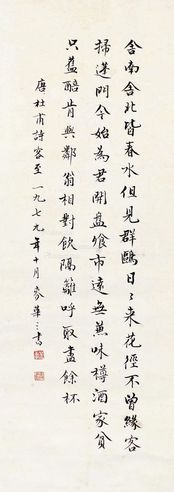 舍南舍北皆春水但見群鷗日々来花徑不曾緣客
掃蓬門今始為君開盤飧市遠無蒹味樽酒家貧
只舊醅肯與鄰翁相對飲隔籬呼取盡餘杯
唐杜甫詩客至一九七九年十月 書